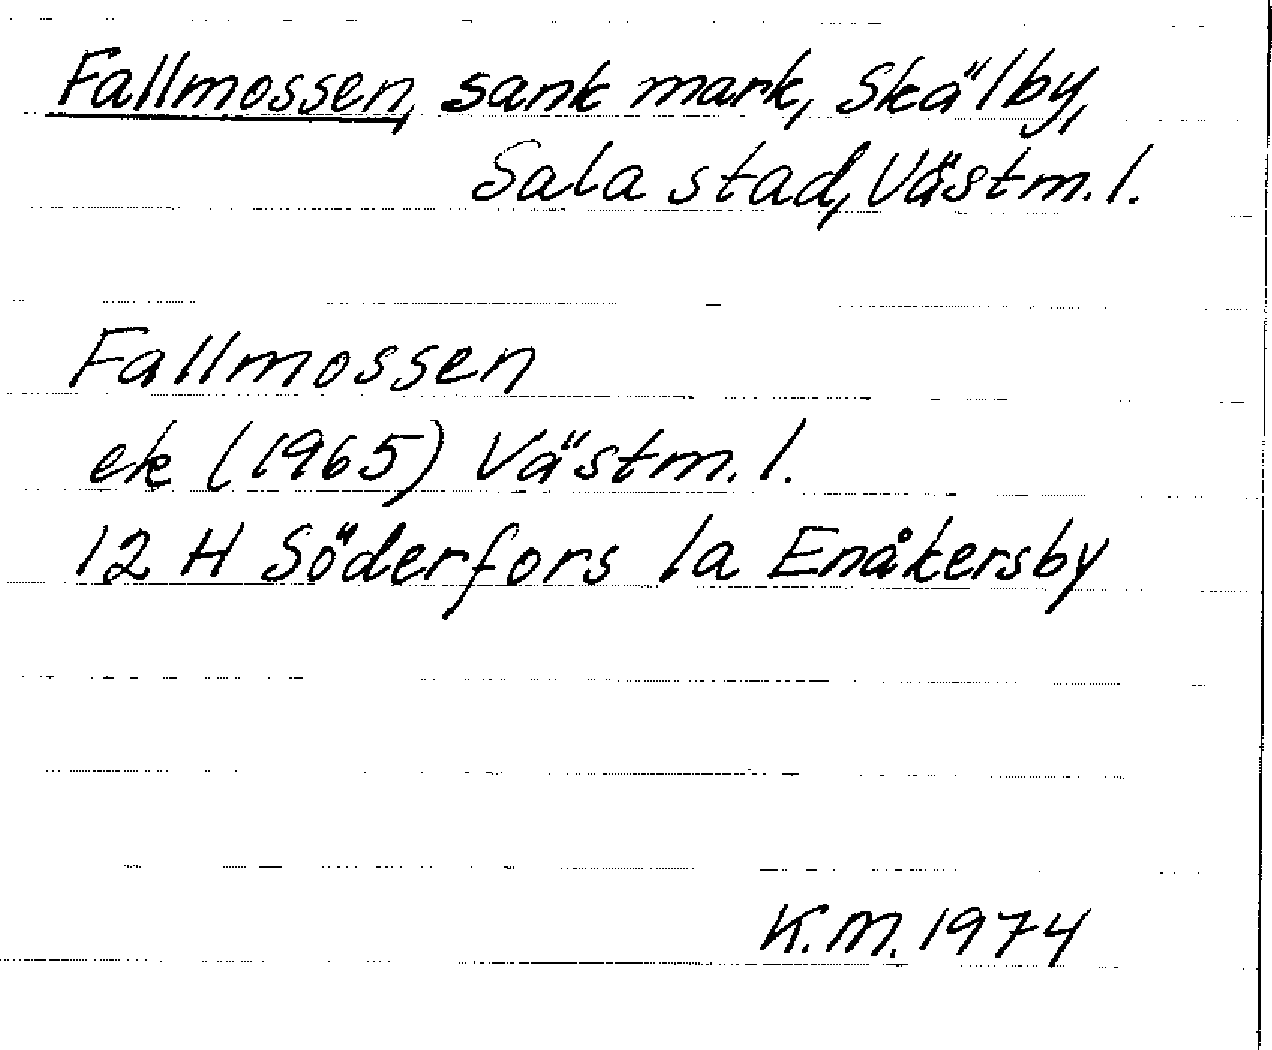 Fallmossen, sank mark, Skälby,
Sala stad, Västm. l.
Fallmossen
ek (1965) Västm. l.
12 H Söderfors 1a Enåkersby
K.M. 1974